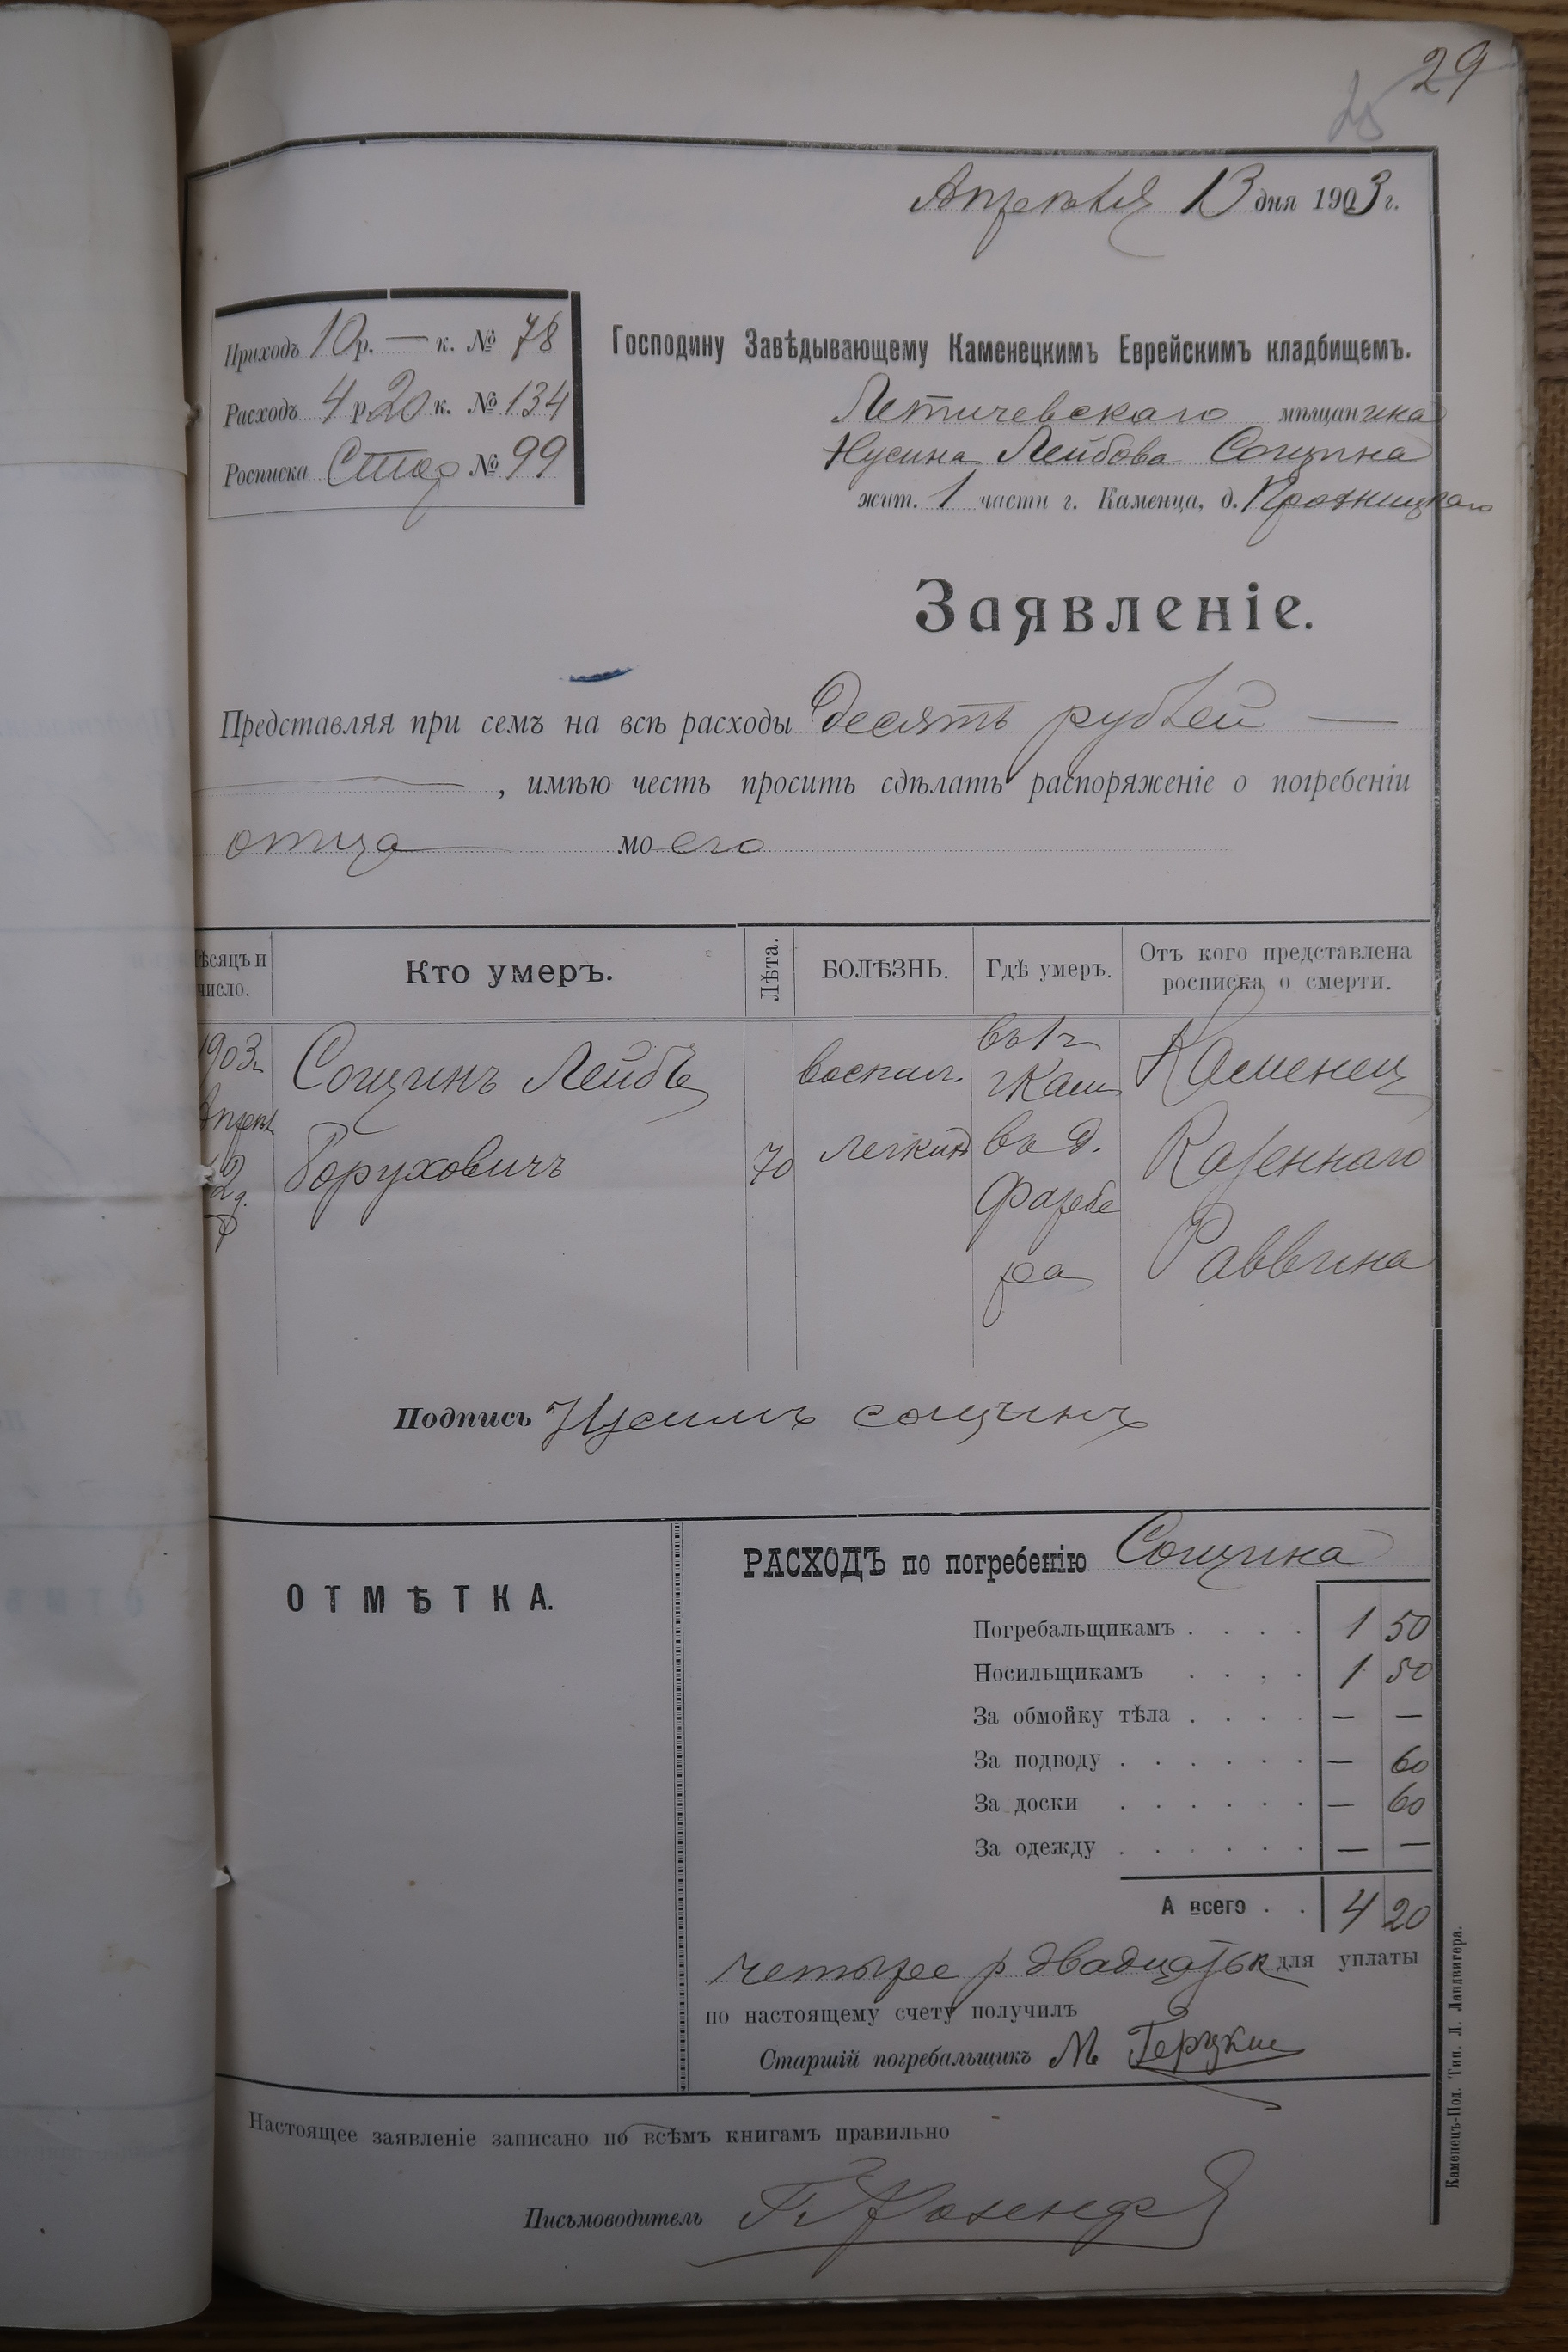 29
28
Апрѣля 13 дня 1903 г.
Приходъ 10 р. — к. № 78
Расходъ 4 р. 20 к. № 134
Росписка № 99
Господину Завѣдывающему Каменецкимъ Еврейскимъ кладбищемъ.
Летичевскаго мѣщанина
Нусина Лейбова Сощина
жит. 1 части г. Каменца, д.
Заявленіе.
Представляя при семъ на всѣ расходы Десять рублей —
— , имѣю честь просить сдѣлать распоряженіе о погребеніи
отца моего
Мѣсяцъ и число. Кто умеръ. Лѣта. БОЛѢЗНЬ. Гдѣ умеръ. Отъ кого представлена росписка о смерти.
1903 г. Сощинъ Лейбъ воспал. въ 1 ч. Каменец
Апрѣл г Кам
12 д. Боруховичъ 70 легких въ д. Казеннаго
Фарбе
ра Раввина
Подпись сощинъ
ОТМѢТКА.
РАСХОДЪ по погребенію Сощина
Погребальщикамъ . . . . 1 50
Носильщикамъ . . . . 1 50
За обмойку тѣла . . . . — —
За подводу . . . . . . — 60
За доски . . . . . . — 60
За одежду . . . . . . — —
А всего . . 4 20
четыре р двадцать к для уплаты
по настоящему счету получилъ
Старшій погребальщикъ М
Настоящее заявленіе записано по всѣмъ книгамъ правильно
Письмоводитель
Каменецъ-Под. Тип. Л. Ландвигера.